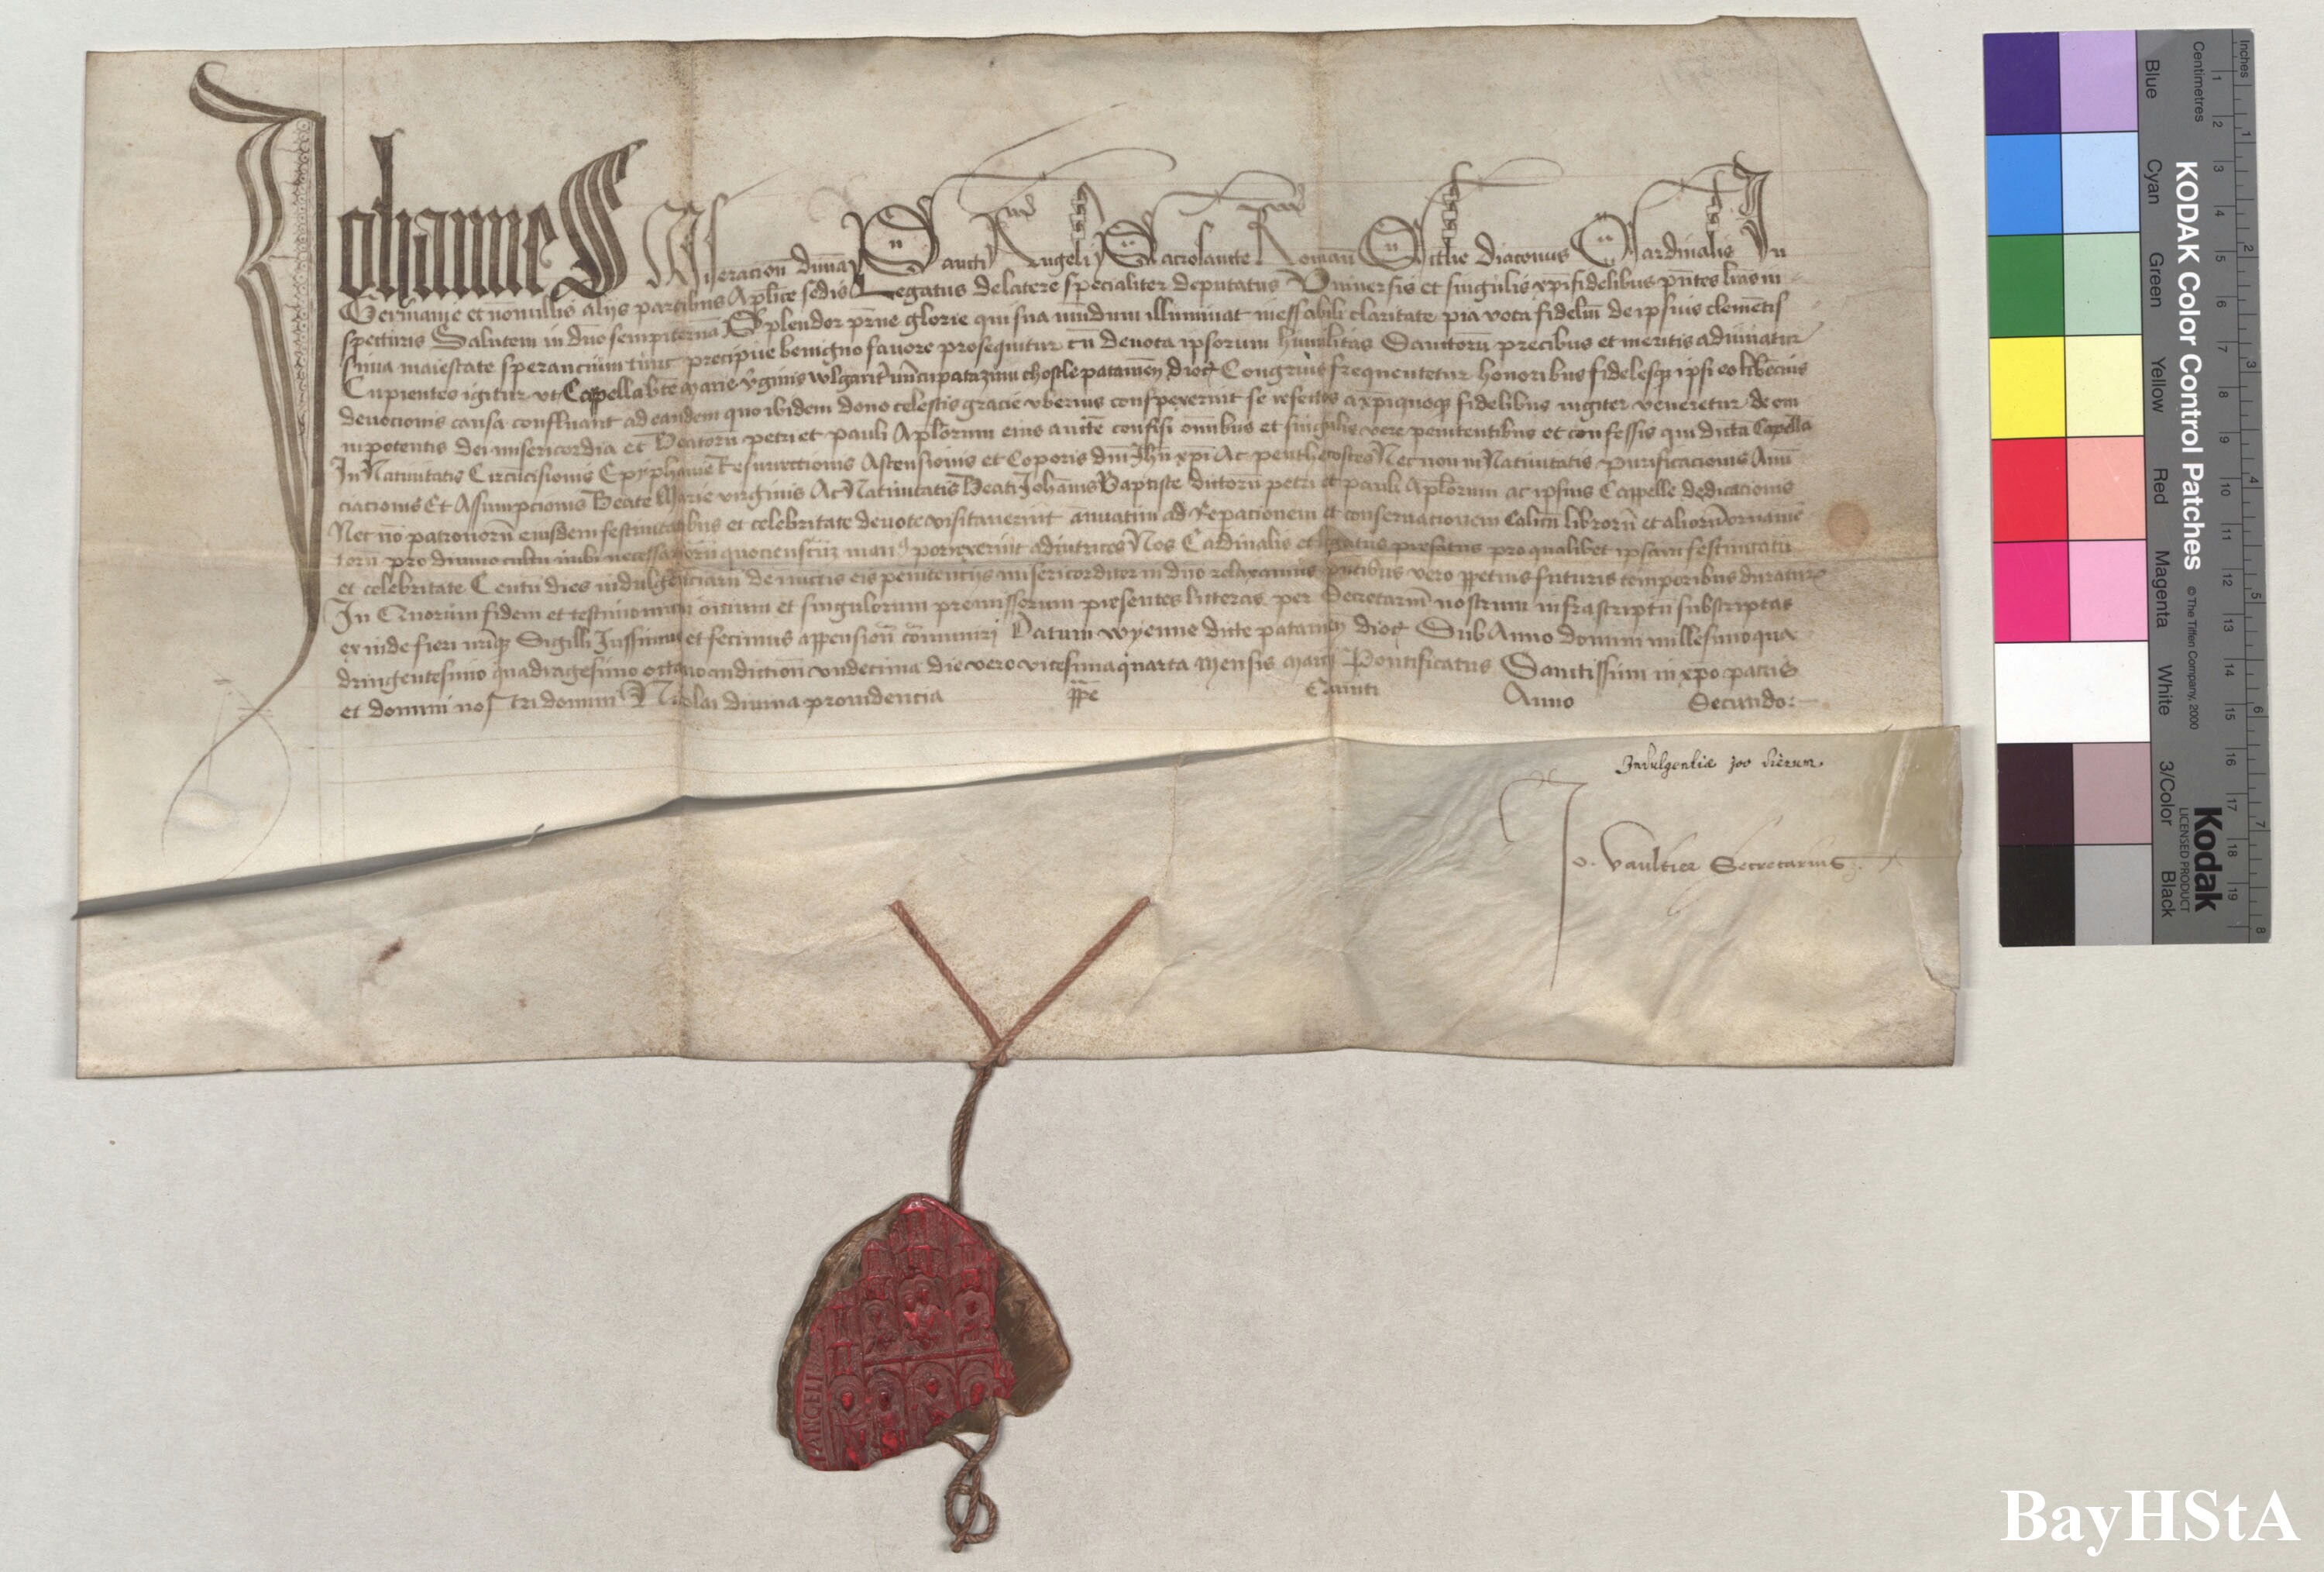 Johannes Miseration diuina Sancti Angeli Sacrosancte Roman Ecclie Diaconus Cardinalis In
Germanie et nonnullis alijs partibus Aplice sedis Legatus de latere specialiter deputatus Vniuersis et singulis xpifidelibus pntes lras in
specturis Salutem in dno sempiternam Splendor prne glorie qui sua mundum illuminat ineffabili claritate pia vota fidelium de ipsius clementis
sima maiestate sperancium tunc precipue benigno fauore prosequitur cu deuota ipsorum humilitas Sanctoru precibus et meritis adiuuatur
Cupientes igitur vt Cappella bte marie vginis wlgarit nucupata patamen dioc Congruis frequentetur honoribus fidelesq ipsi eo libecius
deuocionis causa confluant ad eandem quo ibidem dono celestis gracie vberius conspexerint se refectos a xpiquoq fidelibus iugiter veneretur de om
nipotentis dei misericordia et Beatoru petri et pauli Aplorum eius aucte confisi omibus et singulis vere penitentibus et confessis qui dicta Capella
In Natiuitatis Circucisionis Epyphanie Resurrectionis Ascensionis et Coporis dni Jhu xpi Ac penthecostes Nec non in Natiuitatis Purificacionis Anu
ciacionis Et Assumpcionis Beate Marie virginis Ac Natiuitatis Beati Johanis Baptiste dictoru petri et pauli Aplorum ac ipsius Cappelle dedicacionis
Nec no patronoru eiusdem festiuitatibus et celebritate deuote visitauerint anuatim ad Repacionem et conseruationem Calicu libroru et alioru orname
toru pro diuino cultu inibi necessarioru quocienscuz man porrexerint adiutrices Nos Cardinalis et legatus prefatus pro qualibet ipsaru festiuitatu
et celebritate Centu dies indulgenciaru de iniuctis eis penitencijs misericorditer in dno relaxamus pntibus vero ppetuis futuris temporibus duraturis
In Quorum fidem et testimonium omium et singulorum premissorum presentes litteras per Secretariu nostrum infrascriptu subscriptas
exinde fieri nriq Sigilli Jussimus et fecimus appension comuniri Datum wyenne dicte patamen dioc Sub Anno domini millesimo qua
dringentesimo quadragesimo octauo indiction vndecima die vero vicesimaquarta mensis marcij Pontificatus Sanctissimi in xpo patris
et domini nostri domini Nicolai diuina prouidencia ppe Quinti Anno Secundo:
Indulgentiæ 100 dierum.
Jo. Vaultier Secretarius
ANGELI
Inches
Centimetres
KODAK Color Control Patches © The Tiffen Company, 2000
Kodak
LICENSED PRODUCT
Blue Cyan Green Yellow Red Magenta White 3/Color Black
BayHStA